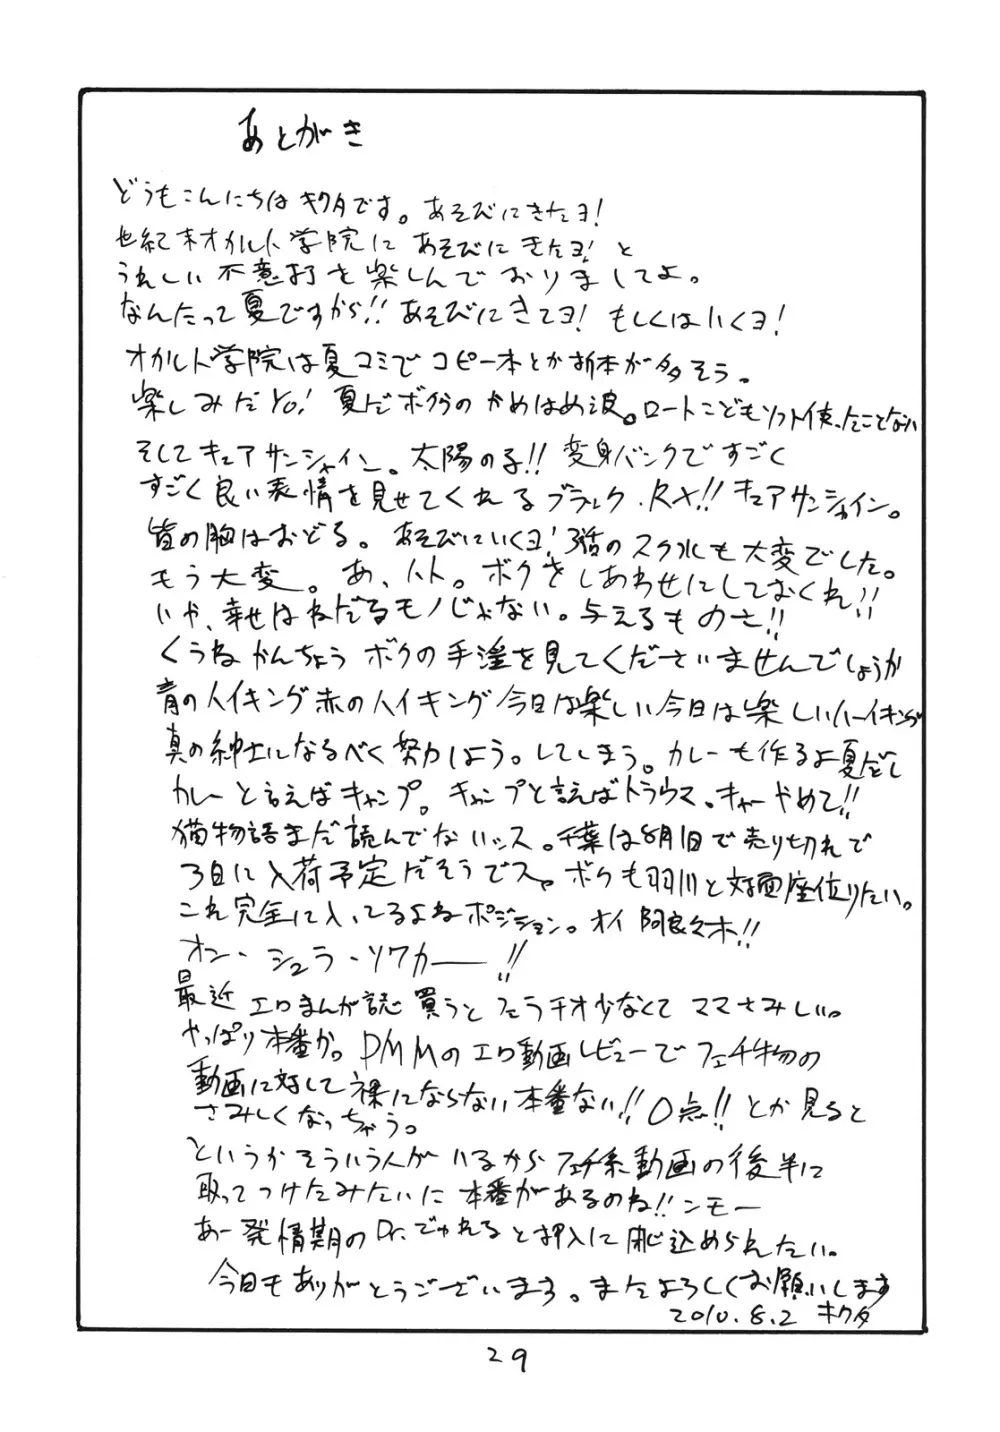 あとがき
どうもこんにちはキクタです。あそびにきたヨ!
世紀末オカルト学院に あそびに きたヨ!と
うれしい 不意打を楽しんでおりましてよ。
なんたって夏ですから!!あそびにきてヨ! もしくはいくヨ!
オカルト学院は夏コミでコピー本とか新本が多そう。
楽しみだYO! 夏だボクらのかめはめ波。ロートこどもソフト使ったことない
そしてキュアサンシャイン。太陽の子!! 変身バンクですごく
すごく良い表情を見せてくれるブラック・RX!!キュアサンシャイン。
皆の胸はおどる。あそびにいくヨ!のスク水も大変でした。
もう大変。あ、ハト。ボクをしあわせにしておくれ!!
いや、幸せはねだるモノじゃない。与えるものさ!!
くうねかんちょう ボクの手淫を見てくださいませんでしょうか
青のハイキング赤のハイキング今日は楽しい今日は楽しいハーイキング
真の紳士になるべく努力しよう。してしまう。カレーも作るよ夏だし
カレーと言えばキャンプ。キャンプと言えばトラウマ。キャーやめて!!
猫物語まだ読んでないッス。千葉は8月1日で売り切れで
3日に入荷予定だそうでス。ボクも羽川と対面座位りたい。
これ完全に入ってるよねポジション。オイ阿良々木!!
オン・シュラ・ソワカー!!
最近エロまんが誌買うとフェラチオ少なくてママさみしい。
やっぱり本番か。DMMのエロ動画レビューでフェチ物の
動画に対して裸にならない本番ない!!0点!!とか見ると
さみしくなっちゃう。
というかそういう人がいるからフェチ系動画の後半に
取ってつけたみたいに本番があるのね!!ンモー
あー発情期のDr.でゅれると押入に閉じ込められたい。
今日もありがとうございます。またよろしくお願いします
2010.8.2 キクタ
29